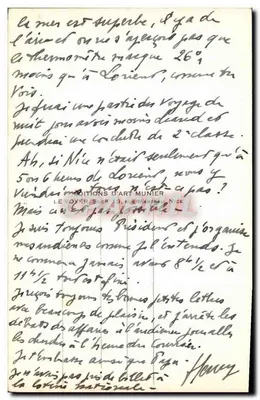 la mer est superbe, il y a de
l'air et on ne s'aperçoit pas que
le thermomètre marque 26°,
moins qu'à Lorient, comme tu
vois.
Je ferai une partie du voyage de
nuit pour avoir moins chaud et
prendrai une couchette de 2e classe.
Ah, si Nice n'était seulement qu'à
5 ou 6 heures de Lorient, nous y
viendrions tous, n'est-ce pas ?
Mais
EDITIONS D'ART MUNIER
Je suis toujours Président et j'organise
mes audiences comme je l'entends. Je
ne commence jamais avant 8h 1/2 et à
11h 1/2 tout est fini.
Je reçois toujours tes bonnes petites lettres
avec beaucoup de plaisir, et j'arrête les
débats des affaires à l'audience pour aller
les chercher à l'heure du courrier.
Je t'embrasse ainsi que
Henry
Je n'avais pas pris de billet à
la loterie nationale